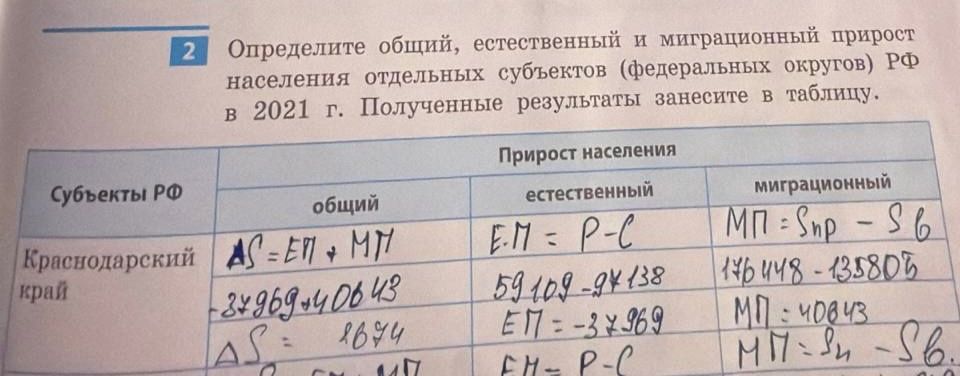 2
Определите общий, естественный и миграционный прирост
населения отдельных субъектов (федеральных округов) РФ
в 2021 г. Полученные результаты занесите в таблицу.
Субъекты РФ
Прирост населения
общий
естественный
миграционный
Краснодарский
край
ΔS = ЕП + МП
Е.П = Р-С
МП = Sпр - Sв
-37969+40643
59109-97138
176448-135805
ΔS = 2674
ЕП = -37969
МП = 40643
МП
ЕП = Р-С
МП = Sп - Sв.